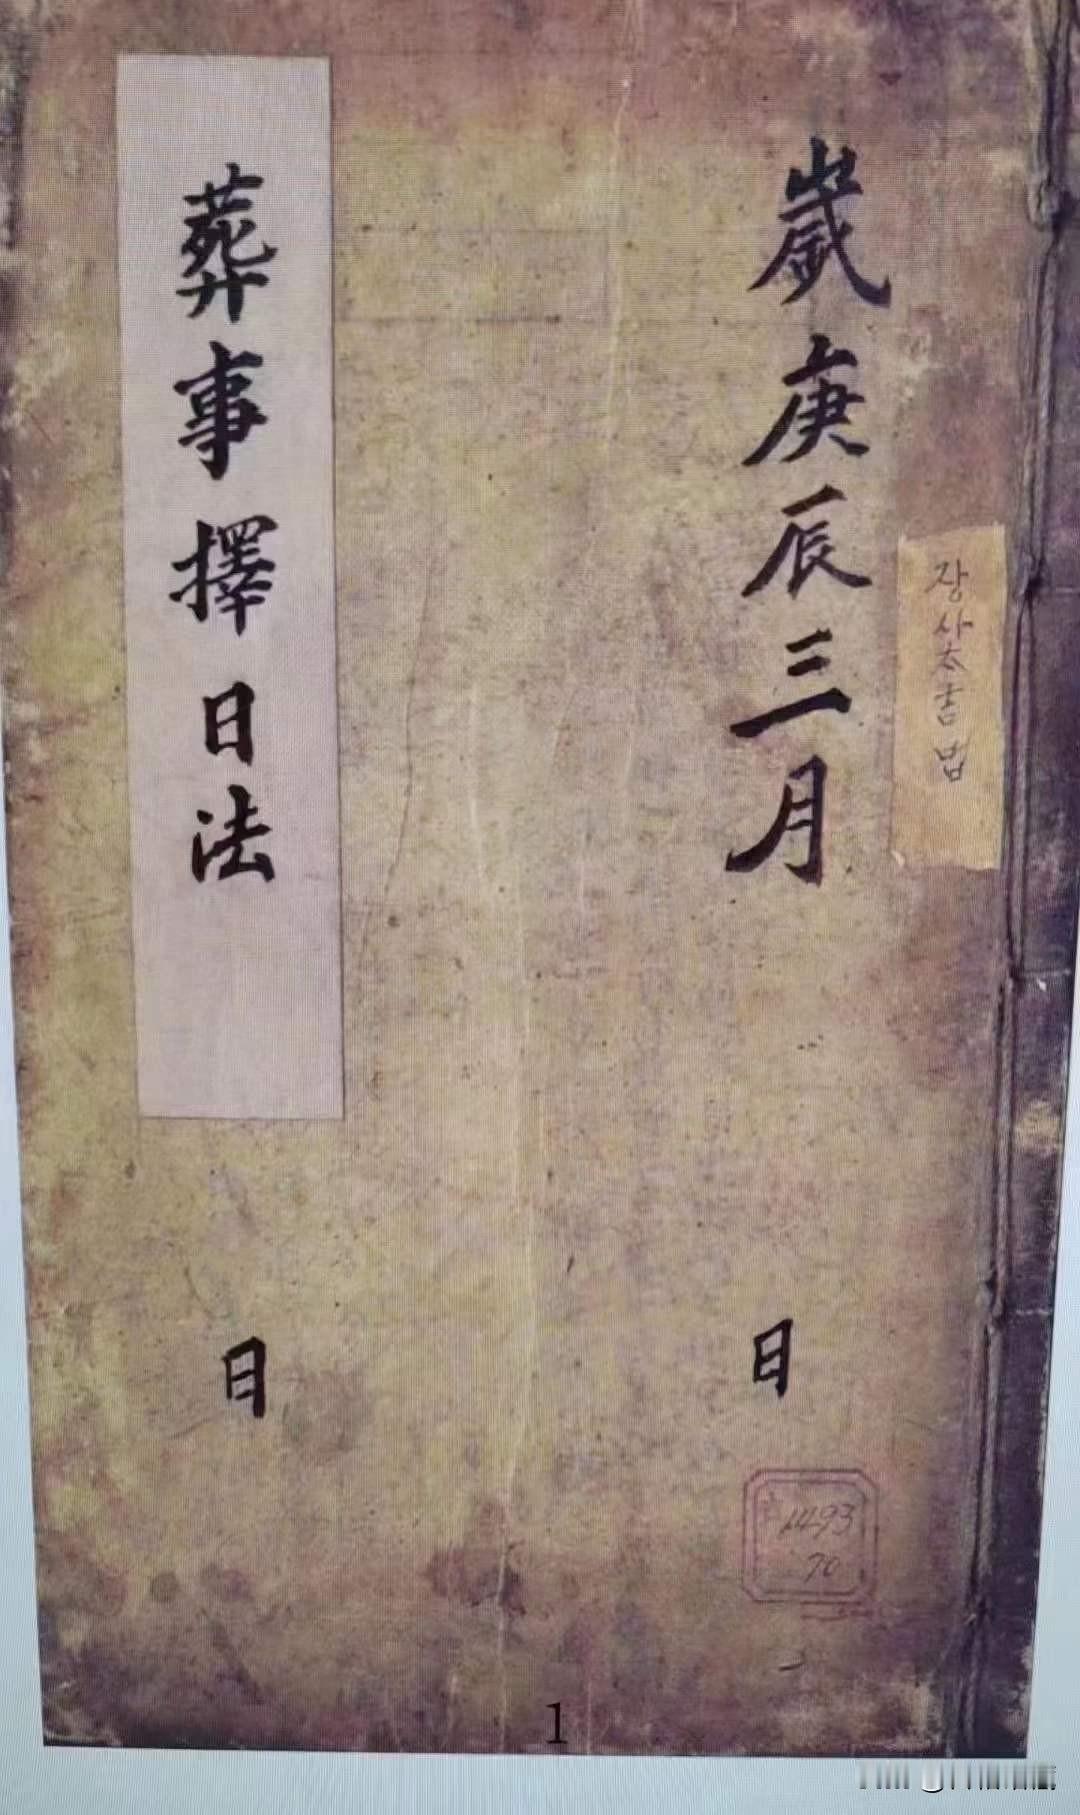 歲庚辰三月
日
葬事擇日法
日
장사太吉법
1493
70
1